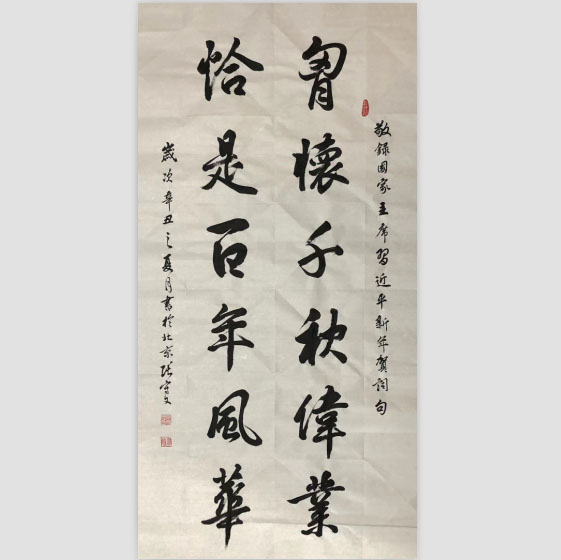 敬録国家主席習近平新年贺詞句
胷懷千秋偉業
恰是百年風華
歲次辛丑之夏月書於北京